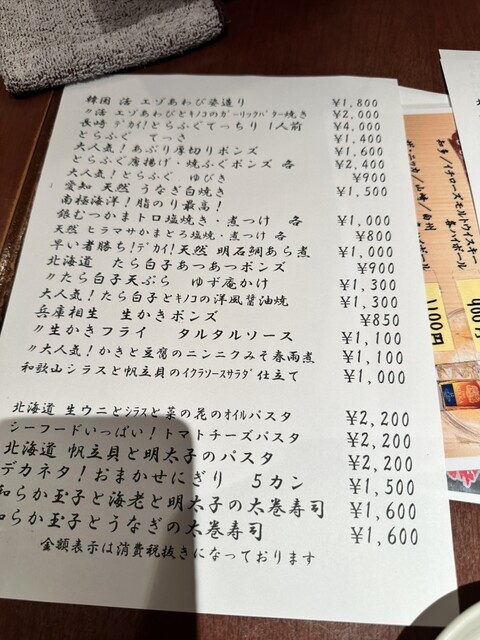 韓国 活 エゾあわび姿造り ¥1,800
〃活 エゾあわびとキノコのガーリックバター焼き ¥2,000
長崎 デカイ!とらふぐてっちり 1人前 ¥4,000
とらふぐ てっさ ¥1,400
大人気!あぶり厚切りポンズ ¥1,600
とらふぐ唐揚げ・焼ふぐポンズ 各 ¥2,400
大人気!とらふぐ ゆびき ¥900
愛知 天然 うなぎ白焼き ¥1,500
南極海洋!脂のり最高!
銀むつかまトロ塩焼き・煮つけ 各 ¥1,000
天然 ヒラマサかまとろ塩焼き・煮つけ 各 ¥800
早い者勝ち!デカイ!天然 明石鯛あら煮 ¥1,000
北海道 たら白子あつあつポンズ ¥900
〃たら白子天ぷら ゆず庵かけ ¥1,300
大人気!たら白子とキノコの洋風醤油焼 ¥1,300
兵庫相生 生かきポンズ ¥850
〃生かきフライ タルタルソース ¥1,100
〃大人気!かきと豆腐のニンニクみそ春雨煮 ¥1,100
和歌山シラスと帆立貝のイクラソースサラダ仕立て ¥1,000
北海道 生ウニとシラスと菜の花のオイルパスタ ¥2,200
シーフードいっぱい!トマトチーズパスタ ¥2,200
北海道 帆立貝と明太子のパスタ ¥2,200
デカネタ!おまかせにぎり 5カン ¥1,500
らか玉子と海老と明太子の太巻寿司 ¥1,600
らか玉子とうなぎの太巻寿司 ¥1,600
金額表示は消費税抜きになっております
知多/イチローズモルトウイスキー
各ハイボール
山崎/白州
1,100円
900円